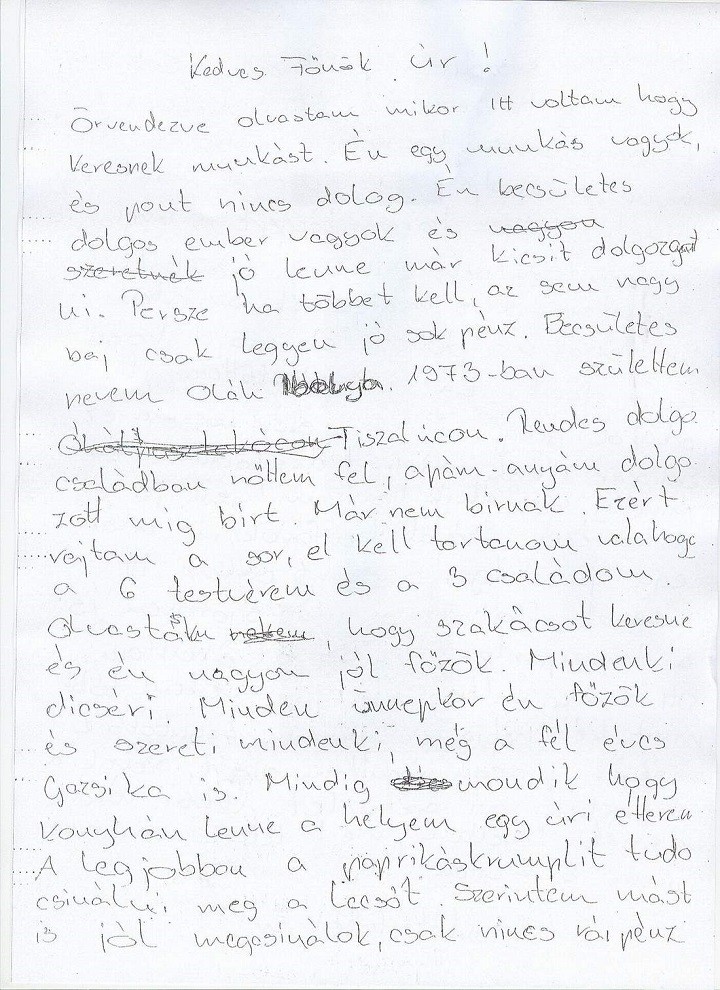 Kedves Főnök úr!
Örvendezve olvastam mikor itt voltam hogy
keresnek munkást. Én egy munkás vagyok,
és pont nincs dolog. Én becsületes
dolgos ember vagyok és nagyon
szeretnék jó lenne már kicsit dolgozgat
ni. Persze ha többet kell, az sem nagy
baj csak leggyen jó sok pénz. Becsületes
nevem Oláh 1973-ban születtem
Tiszalúcon. Rendes dolgo
családban nőttem fel, apám-anyám dolgo
zott mig birt. Már nem birnak. Ezért
rajtam a sor, el kell tartanom valahogy
a 6 testvérem és a 3 családom.
Olvastám, hogy szakácsot keresne
és én nagyon jól főzök. Mindenki
dicséri. Minden ünnepkor én főzök
és szereti mindenki, még a fél éves
Gazsika is. Mindig mondik hogy
konyhán lenne a helyem egy úri étterem
A legjobban a paprikáskrumplit tudo
csinálni meg a lecsót. Szerintem mást
is jól megcsinálok, csak nincs rái pénz